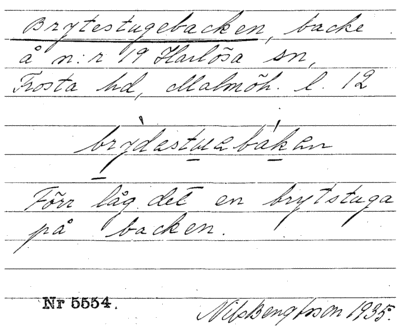 Brytestugebacken, backe
å n:r 19 Harlösa sn,
Frosta hd, Malmöh. l. 12
brỳdastuabákan
Förr låg det en brytstuga
på backen.
Nr 5554.
Nils Bengtsson 1935.